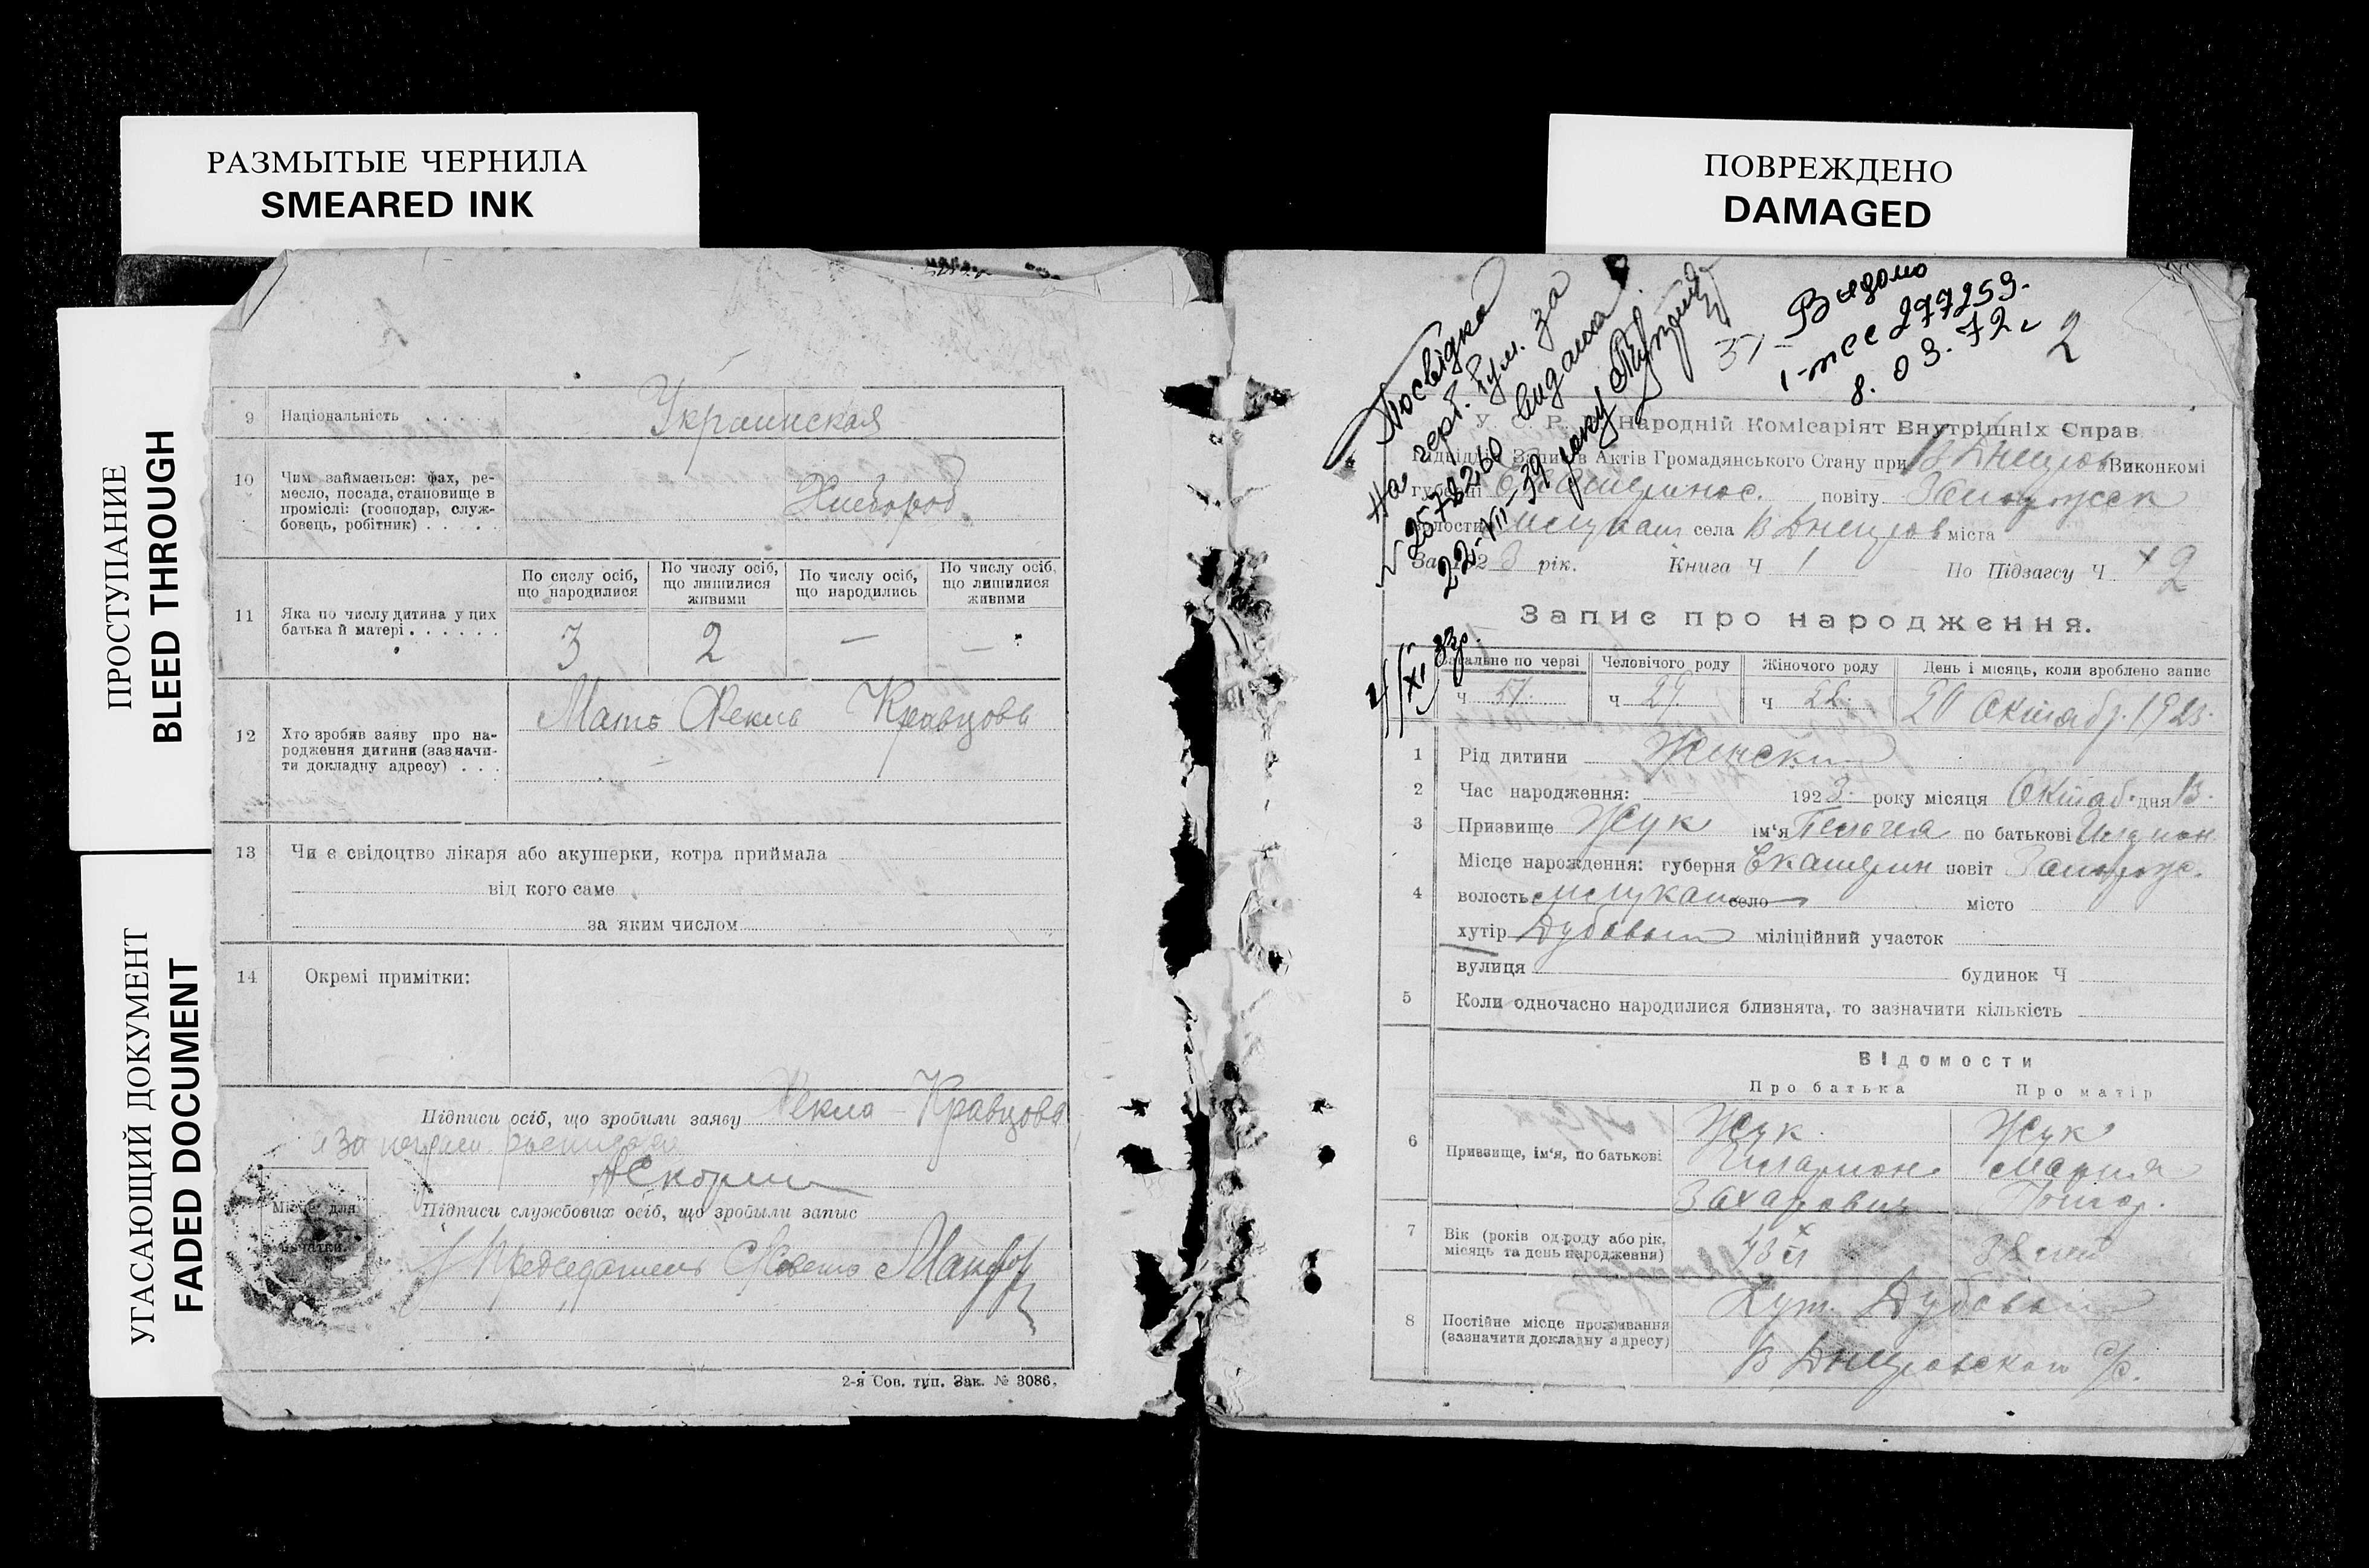 РАЗМЫТЫЕ ЧЕРНИЛА
SMEARED INK
ПРОСТУПАНИЕ
BLEED THROUGH
УГАСАЮЩИЙ ДОКУМЕНТ
FADED DOCUMENT
9 Національність . . . . Украинская
10 Чим займається: фах, ре-
месло, посада, становище в
проміслі: (господар, служ-
бовець, робітник) . . . .
Хлебороб
11 Яка по числу дитина у цих
батька й матері . . . . . .
По числу осіб,
що народилися
По числу осіб,
що лишилися
живими
По числу осіб,
що народились
По числу осіб,
що лишилися
живими
3 2 — —
12 Хто зробив заяву про на-
родження дитини (зазначи-
ти докладну адресу) . . .
Мать Фекла Кравцова
13 Чи є свідоцтво лікаря або акушерки, котра приймала
від кого саме
за яким числом
14 Окремі примітки:
Підписи осіб, що зробили заяву Фекла Кравцова
Підписи службових осіб, що зробыли запыс
Місце для
печатки
Председатель
2-я Сов. тип. Зак. № 3086.
ПОВРЕЖДЕНО
DAMAGED
Посвідка
На герб. бум. за
№ 2578260 видана
22-VII-39 року
Видано
277259.
8. 03. 72 г
2
У. С. Р. Р. Народній Комісаріят Внутрішніх Справ
Підвідділ Записів Актів Громадянського Стану при В Днепров Виконкомі
губерні Екатеринос. повіту Запорожск
волости села В Днепров міста
За 1923 рік. Книга Ч 1 По Підзагсу Ч 2
Запис про народження.
Загальне по черзі Человічого роду Жіночого роду День і місяць, коли зроблено запис
ч 51. ч 29 ч 22. 20 Октябр. 1923.
1 Рід дитини Женский
2 Час народження: 1923. року місяця Октяб. дня 13.
3 Призвище Жук ім'я Пелагея по батькові Иларион.
4 Місце нарождення: губерня Екатерин повіт Запорож.
волость село місто
хутір Дубовый міліційний участок
вулиця будинок Ч
5 Коли одночасно народилися близнята, то зазначити кількість
Відомости
Про батька Про матір
6 Призвище, ім'я, по батькові
Жук Жук
Иларион Мария
Захарович Григор.
7 Вік (років од роду або рік,
місяць та день народження)
43 38 лет
8 Постійне місце проживання
(зазначити докладну адресу)
Хут. Дубовый
В Днепровского С/с.